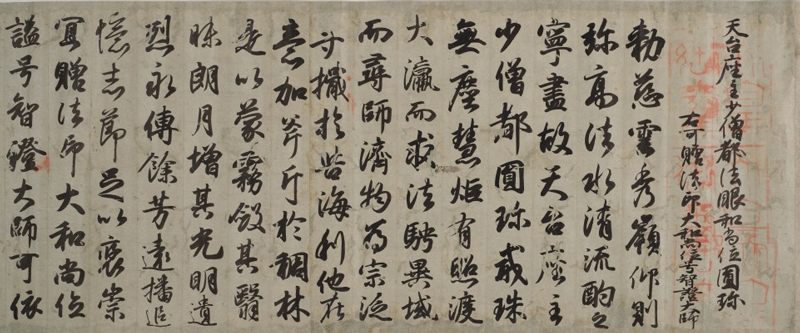 天台座主少僧都法眼和尚位圓珎
右可贈法印大和尚位号智證大師
勅慈雲秀嶺仰則
弥高法水清流酌之
寧盡故天台座主
少僧都圓珎戒珠
無塵慧炬有照渡
大瀛而求法騁異域
而尋師濟物為宗泛
寸檝於苦海利他在
意加斧斤於稠林
是以蒙霧斂其翳
昧朗月增其光明遺
烈永傳餘芳遠播追
憶志節足以褒崇
冝贈法印大和尚位
謚号智證大師可依